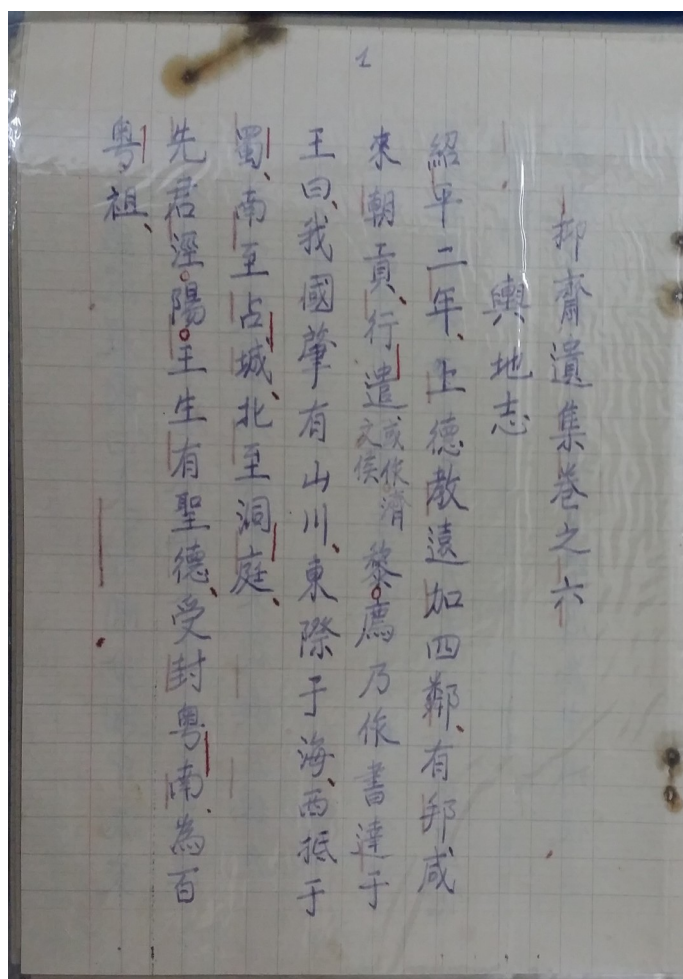 1
抑齋遺集卷之六
輿地志
紹平二年、上德教遠加四鄰、有邦咸
來朝貢、行遣或作濟文侯黎廌乃作書達于
王曰、我國肇有山川、東際于海、西抵于
蜀、南至占城、北至洞庭、
先君涇陽王生有聖德、受封粵南、為百
粵祖、